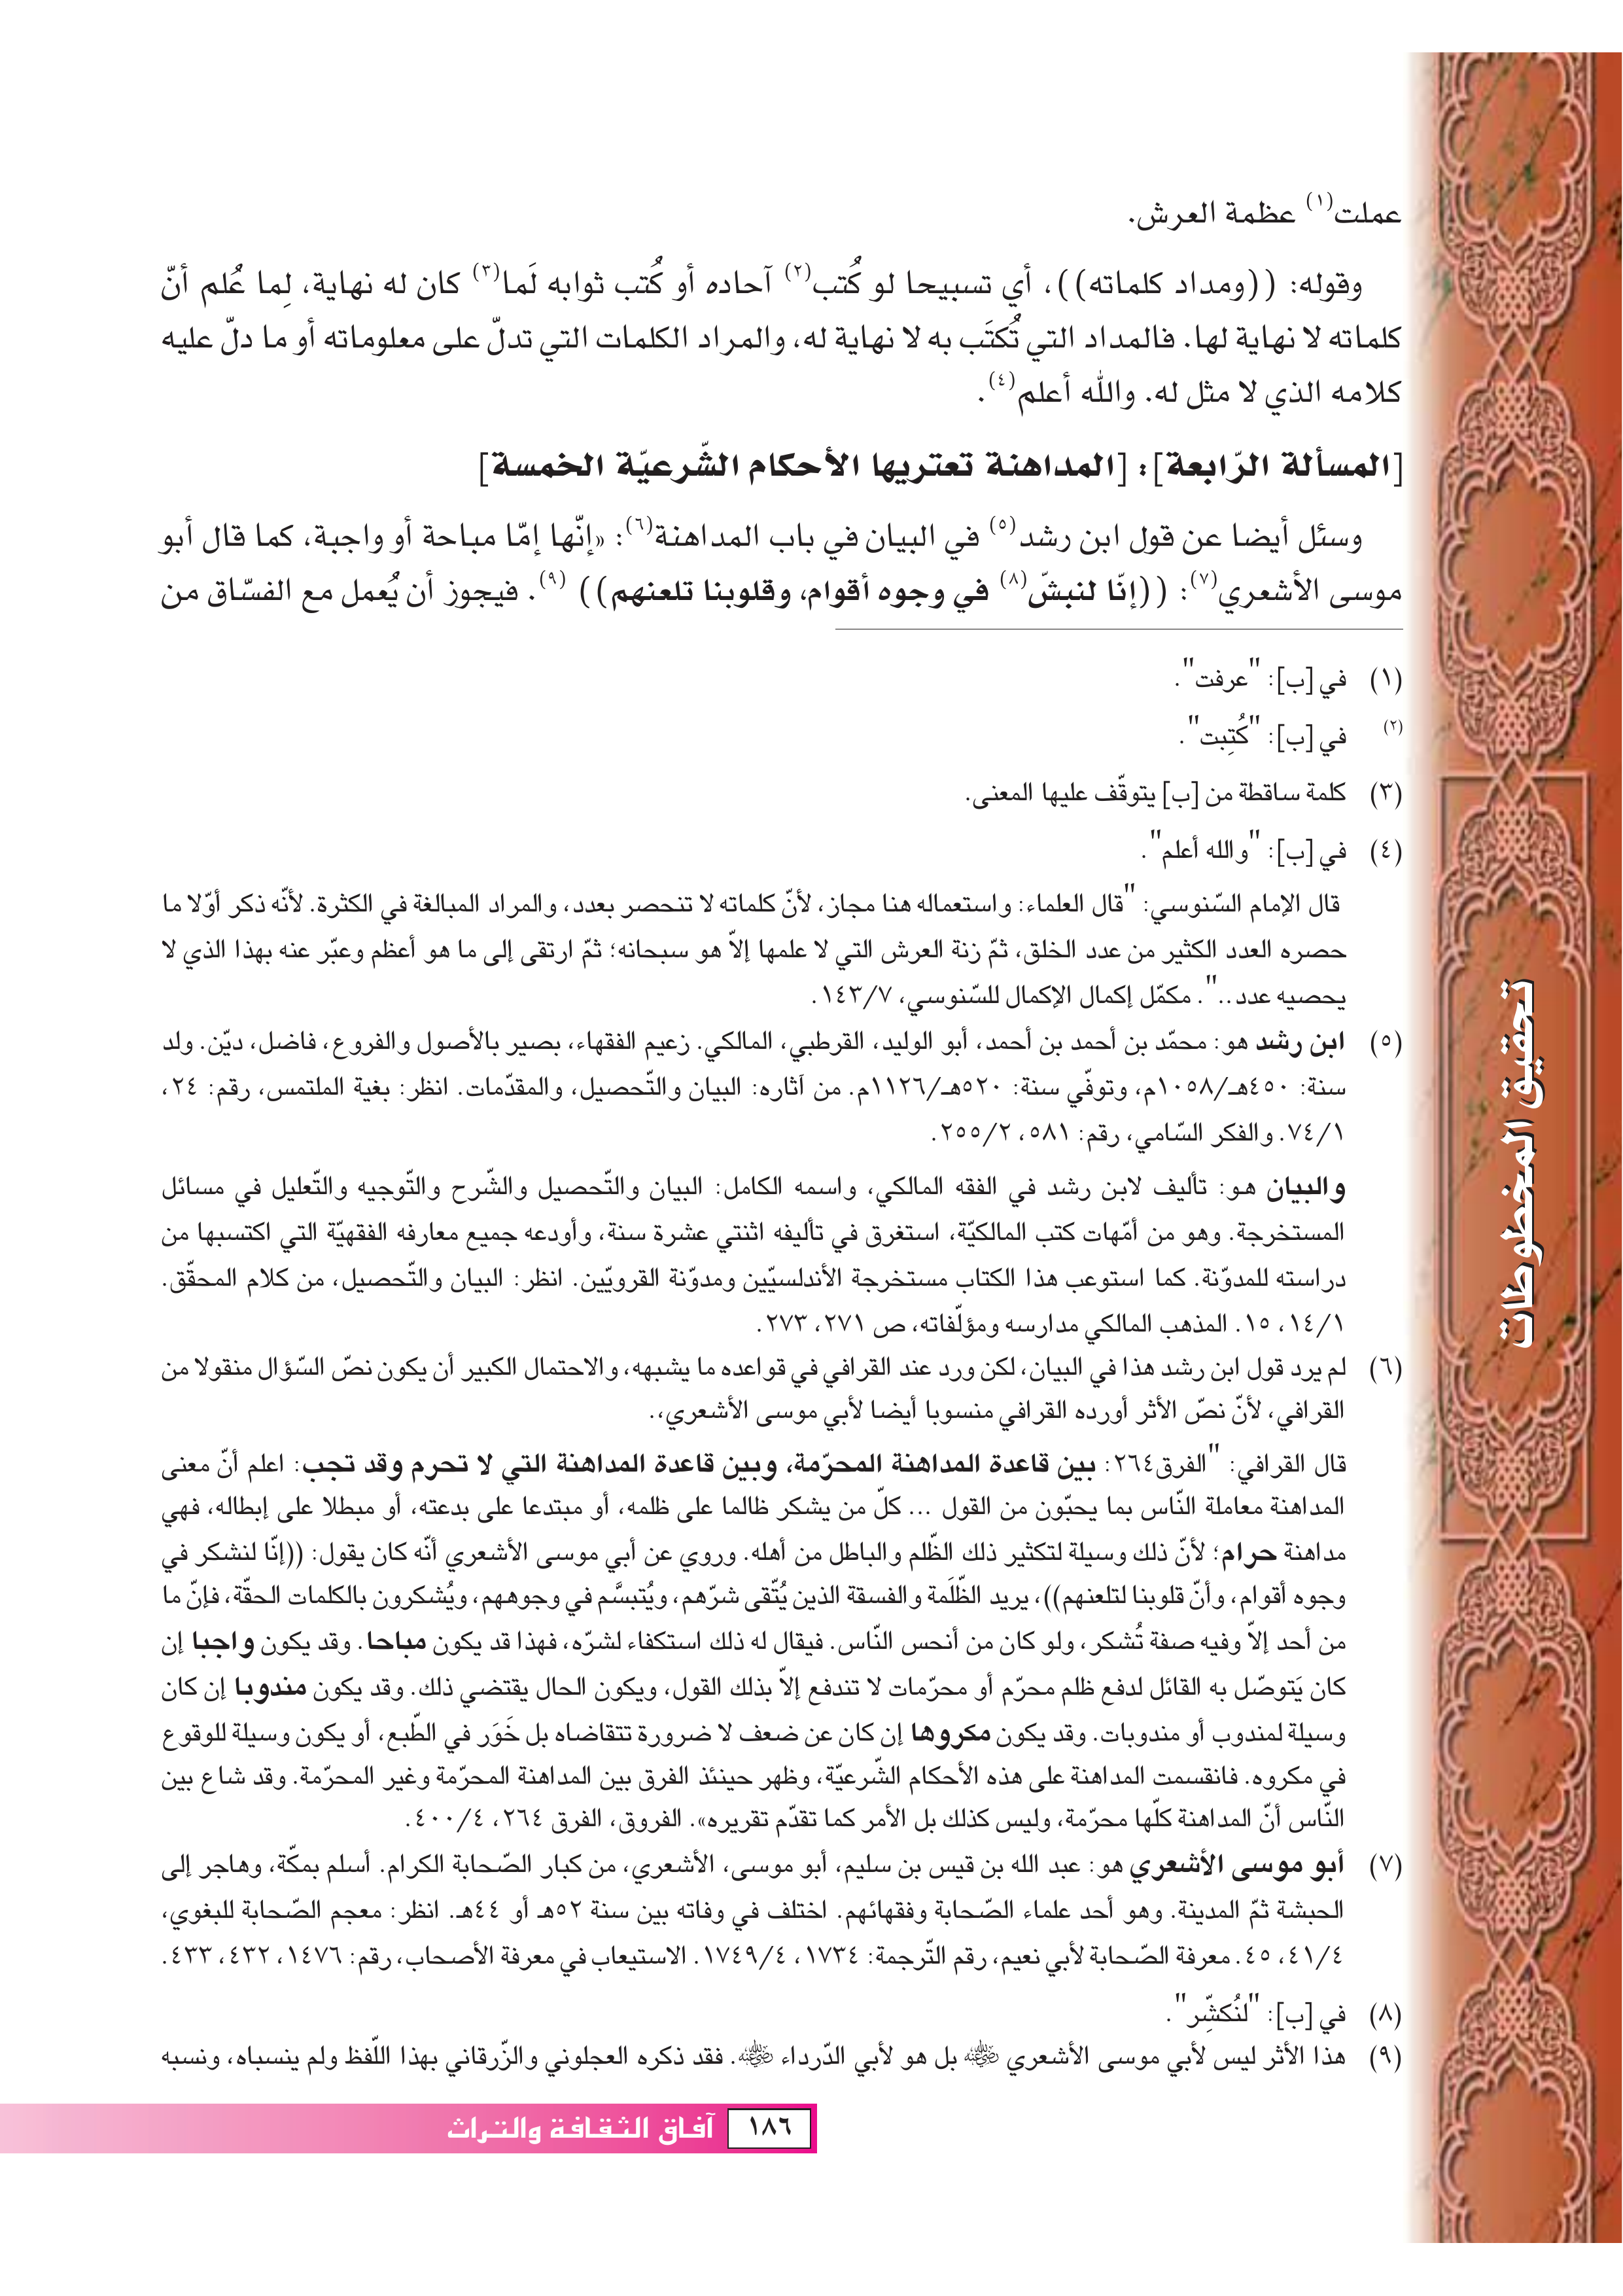 عملت(١) عظمة العرش.
وقوله: ((ومداد كلماته))، أي تسبيحا لو كُتب(٢) آحاده أو كُتب ثوابه لَما(٣) كان له نهاية، لِما عُلم أنّ
كلماته لا نهاية لها. فالمداد التي تُكتَب به لا نهاية له، والمراد الكلمات التي تدلّ على معلوماته أو ما دلّ عليه
كلامه الذي لا مثل له. والله أعلم(٤).
[المسألة الرّابعة]: [المداهنة تعتريها الأحكام الشّرعيّة الخمسة]
وسئل أيضا عن قول ابن رشد(٥) في البيان في باب المداهنة(٦): «إنّها إمّا مباحة أو واجبة، كما قال أبو
موسى الأشعري(٧): ((إنّا لنبشّ(٨) في وجوه أقوام، وقلوبنا تلعنهم)) (٩). فيجوز أن يُعمل مع الفسّاق من
(١) في [ب]: "عرفت".
(٢) في [ب]: "كُتِبت".
(٣) كلمة ساقطة من [ب] يتوقّف عليها المعنى.
(٤) في [ب]: "والله أعلم".
قال الإمام السّنوسي: "قال العلماء: واستعماله هنا مجاز، لأنّ كلماته لا تنحصر بعدد، والمراد المبالغة في الكثرة. لأنّه ذكر أوّلا ما
حصره العدد الكثير من عدد الخلق، ثمّ زنة العرش التي لا علمها إلاّ هو سبحانه؛ ثمّ ارتقى إلى ما هو أعظم وعبّر عنه بهذا الذي لا
يحصيه عدد..". مكمّل إكمال الإكمال للسّنوسي، ١٤٣/٧.
(٥) ابن رشد هو: محمّد بن أحمد بن أحمد، أبو الوليد، القرطبي، المالكي. زعيم الفقهاء، بصير بالأصول والفروع، فاضل، ديّن. ولد
سنة: ٤٥٠هـ/١٠٥٨م، وتوفّي سنة: ٥٢٠هـ/١١٢٦م. من آثاره: البيان والتّحصيل، والمقدّمات. انظر: بغية الملتمس، رقم: ٢٤،
٧٤/١. والفكر السّامي، رقم: ٥٨١، ٢٥٥/٢.
والبيان هو: تأليف لابن رشد في الفقه المالكي، واسمه الكامل: البيان والتّحصيل والشّرح والتّوجيه والتّعليل في مسائل
المستخرجة. وهو من أمّهات كتب المالكيّة، استغرق في تأليفه اثنتي عشرة سنة، وأودعه جميع معارفه الفقهيّة التي اكتسبها من
دراسته للمدوّنة. كما استوعب هذا الكتاب مستخرجة الأندلسيّين ومدوّنة القرويّين. انظر: البيان والتّحصيل، من كلام المحقّق.
١٤/١، ١٥. المذهب المالكي مدارسه ومؤلّفاته، ص ٢٧١، ٢٧٣.
(٦) لم يرد قول ابن رشد هذا في البيان، لكن ورد عند القرافي في قواعده ما يشبهه، والاحتمال الكبير أن يكون نصّ السّؤال منقولا من
القرافي، لأنّ نصّ الأثر أورده القرافي منسوبا أيضا لأبي موسى الأشعري،.
قال القرافي: "الفرق٢٦٤: بين قاعدة المداهنة المحرّمة، وبين قاعدة المداهنة التي لا تحرم وقد تجب: اعلم أنّ معنى
المداهنة معاملة النّاس بما يحبّون من القول ... كلّ من يشكر ظالما على ظلمه، أو مبتدعا على بدعته، أو مبطلا على إبطاله، فهي
مداهنة حرام؛ لأنّ ذلك وسيلة لتكثير ذلك الظّلم والباطل من أهله. وروي عن أبي موسى الأشعري أنّه كان يقول: ((إنّا لنشكر في
وجوه أقوام، وأنّ قلوبنا لتلعنهم))، يريد الظّلَمة والفسقة الذين يُتّقى شرّهم، ويُتبسَّم في وجوههم، ويُشكرون بالكلمات الحقّة، فإنّ ما
من أحد إلاّ وفيه صفة تُشكر، ولو كان من أنحس النّاس. فيقال له ذلك استكفاء لشرّه، فهذا قد يكون مباحا. وقد يكون واجبا إن
كان يَتوصّل به القائل لدفع ظلم محرّم أو محرّمات لا تندفع إلاّ بذلك القول، ويكون الحال يقتضي ذلك. وقد يكون مندوبا إن كان
وسيلة لمندوب أو مندوبات. وقد يكون مكروها إن كان عن ضعف لا ضرورة تتقاضاه بل خَوَر في الطّبع، أو يكون وسيلة للوقوع
في مكروه. فانقسمت المداهنة على هذه الأحكام الشّرعيّة، وظهر حينئذ الفرق بين المداهنة المحرّمة وغير المحرّمة. وقد شاع بين
النّاس أنّ المداهنة كلّها محرّمة، وليس كذلك بل الأمر كما تقدّم تقريره». الفروق، الفرق ٢٦٤، ٤٠٠/٤.
(٧) أبو موسى الأشعري هو: عبد الله بن قيس بن سليم، أبو موسى، الأشعري، من كبار الصّحابة الكرام. أسلم بمكّة، وهاجر إلى
الحبشة ثمّ المدينة. وهو أحد علماء الصّحابة وفقهائهم. اختلف في وفاته بين سنة ٥٢هـ أو ٤٤هـ. انظر: معجم الصّحابة للبغوي،
٤١/٤، ٤٥. معرفة الصّحابة لأبي نعيم، رقم التّرجمة: ١٧٣٤، ١٧٤٩/٤. الاستيعاب في معرفة الأصحاب، رقم: ١٤٧٦، ٤٣٢، ٤٣٣.
(٨) في [ب]: "لنُكشِّر".
(٩) هذا الأثر ليس لأبي موسى الأشعري ﵁ بل هو لأبي الدّرداء ﵁. فقد ذكره العجلوني والزّرقاني بهذا اللّفظ ولم ينسباه، ونسبه
١٨٦ آفاق الثقافة والتراث
تحقيق المخطوطات